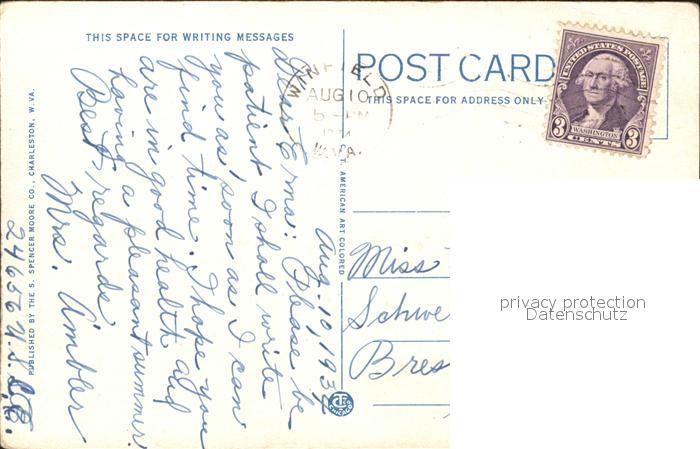 THIS SPACE FOR WRITING MESSAGES
POST CARD
THIS SPACE FOR ADDRESS ONLY
WINFIELD
AUG 10
5-PM
W.VA.
UNITED STATES POSTAGE
3 3
WASHINGTON
CENTS
Aug. 10, 1934
Dear Erna: Please be
patient I shall write
you as soon as I can
find time. I hope you
are in good health and
having a pleasant summer.
Best regards,
Mrs. Ambler
PUBLISHED BY THE S. SPENCER MOORE CO., CHARLESTON, W. VA.
C.T. AMERICAN ART COLORED
Miss
Schwe
Bres
privacy protection
Datenschutz